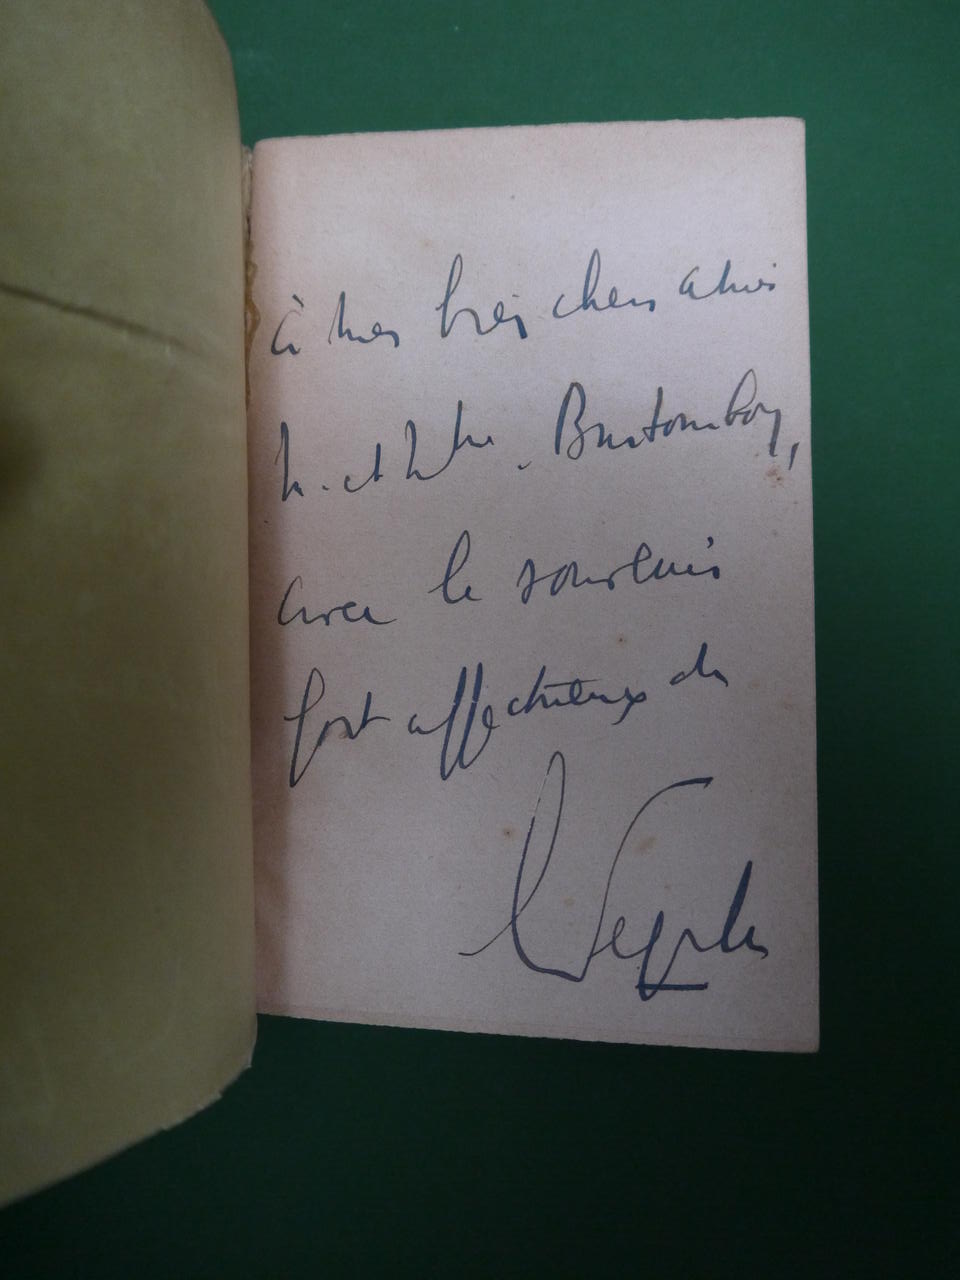 à mes très chers amis
M. et Mme. Burtomboy,
avec le souvenir
fort affectueux de